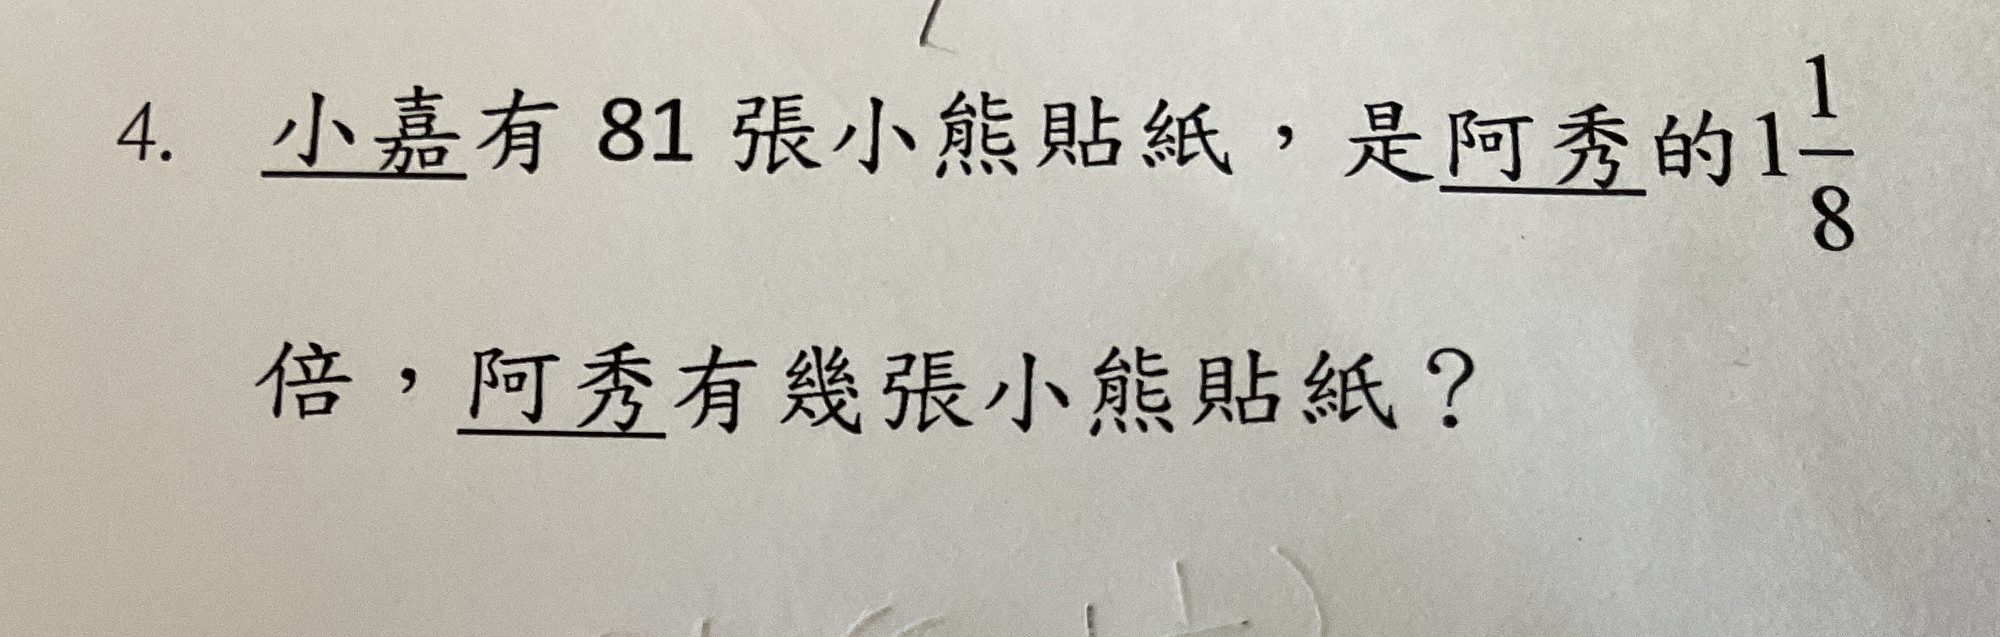 4. 小嘉有 81 張小熊貼紙，是阿秀的1 1/8
倍，阿秀有幾張小熊貼紙？